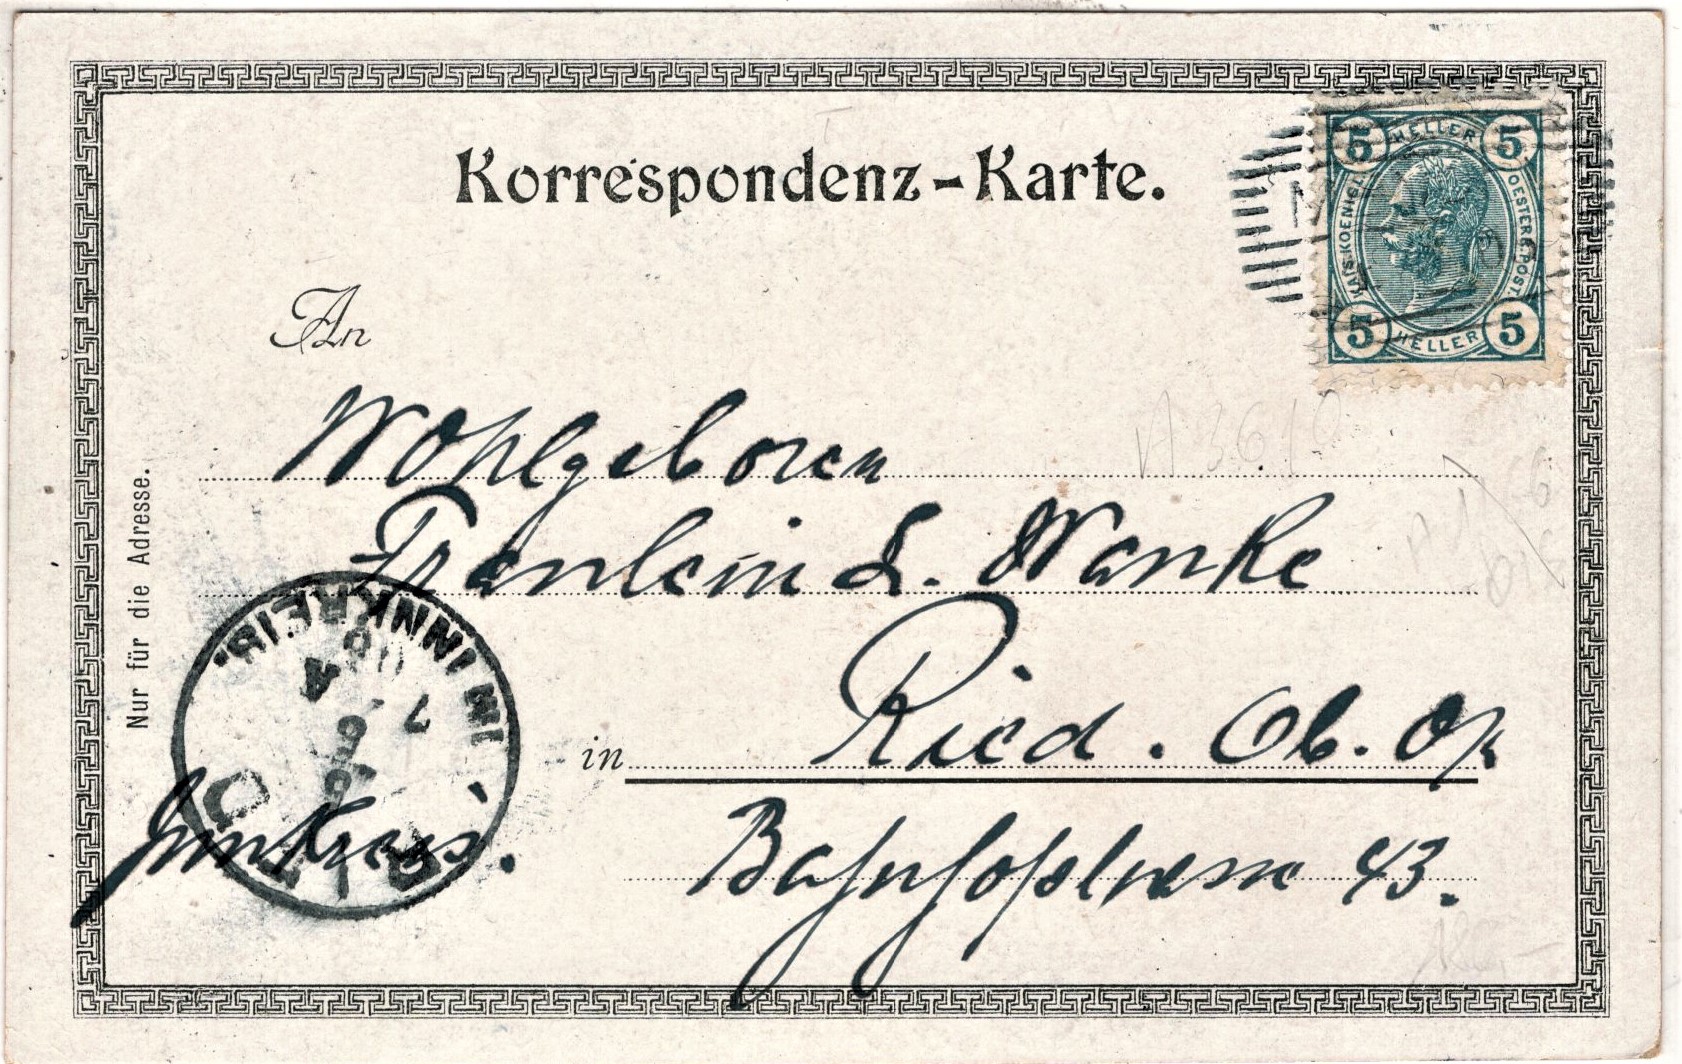 Korrespondenz-Karte.
5 HELLER 5
KAIS. KOENIGL. OESTERR. POST.
5 HELLER 5
An
Wohlgeboren
Fräulein L. Wanke
in Ried. Ob. Oe
Bahnhofstrasse 43.
Innkreis.
Nur für die Adresse.
RIED IM INNKREIS.
7